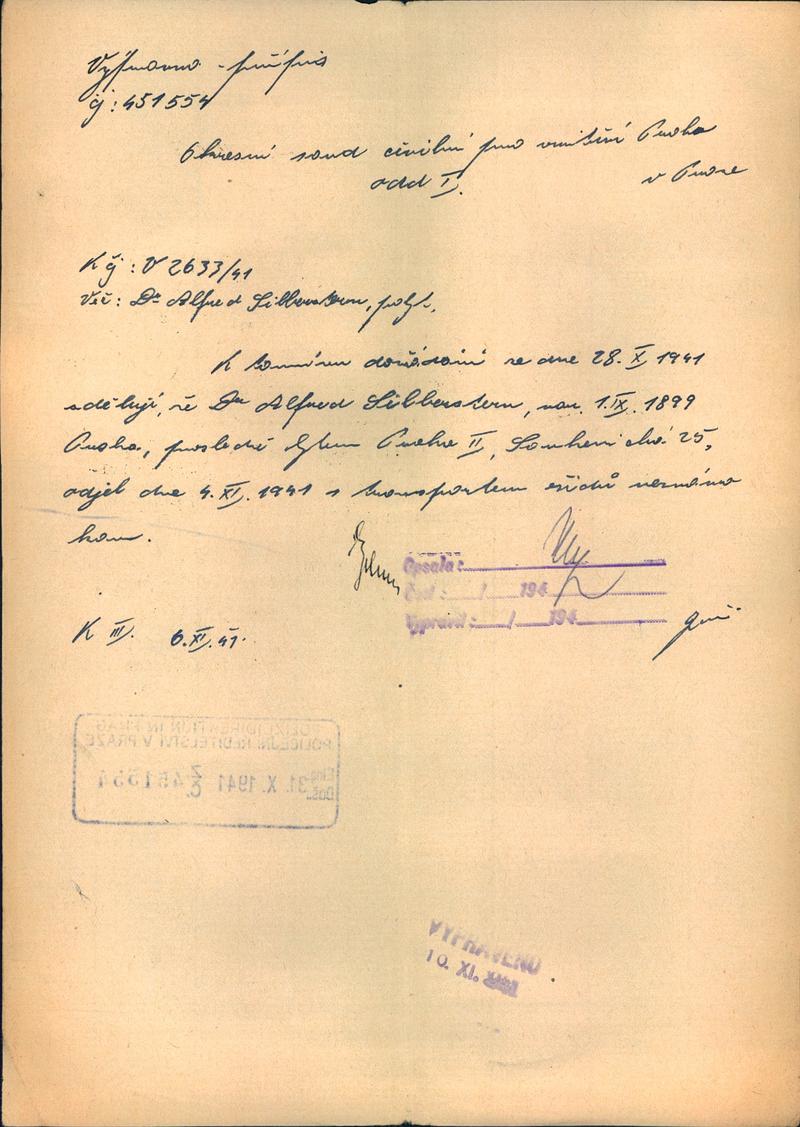 Výpravna - průpis
čj: 451554
Okresní soud civilní pro vnitřní Prahu
odd I.
v Praze
K čj: V 2633/41
Věc: Dr Alfred Silberstern,
K tamnímu dožádání ze dne 28. X. 1941
sděluji, že Dr Alfred Silberstern, nar. 1.IX. 1899
Praha, posledně bytem Praha II, Soukenická 25,
odjel dne 4. XI. 1941 s transportem židů neznámo
kam.
Opsala:
Čet: / 194
Vypravil: / 194
K III. 6.XI.41.
POLIZEIDIREKTION IN PRAG
POLICEJNÍ ŘEDITELSTVÍ V PRAZE
Eing. Doš. 31. X. 1941 Z Č. 451554
VYPRAVENO
10. XI.